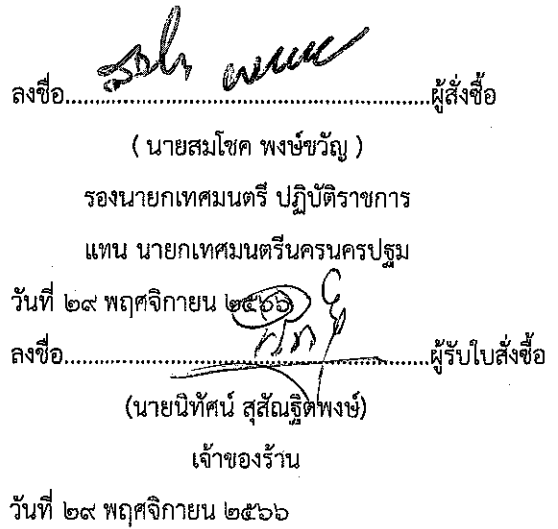 ลงชื่อ..................................................ผู้สั่งซื้อ
( นายสมโชค พงษ์ขวัญ )
รองนายกเทศมนตรี ปฏิบัติราชการ
แทน นายกเทศมนตรีนครนครปฐม
วันที่ ๒๙ พฤศจิกายน ๒๕๖๖
ลงชื่อ..................................................ผู้รับใบสั่งซื้อ
(นายนิทัศน์ สุสัณฐิตพงษ์)
เจ้าของร้าน
วันที่ ๒๙ พฤศจิกายน ๒๕๖๖